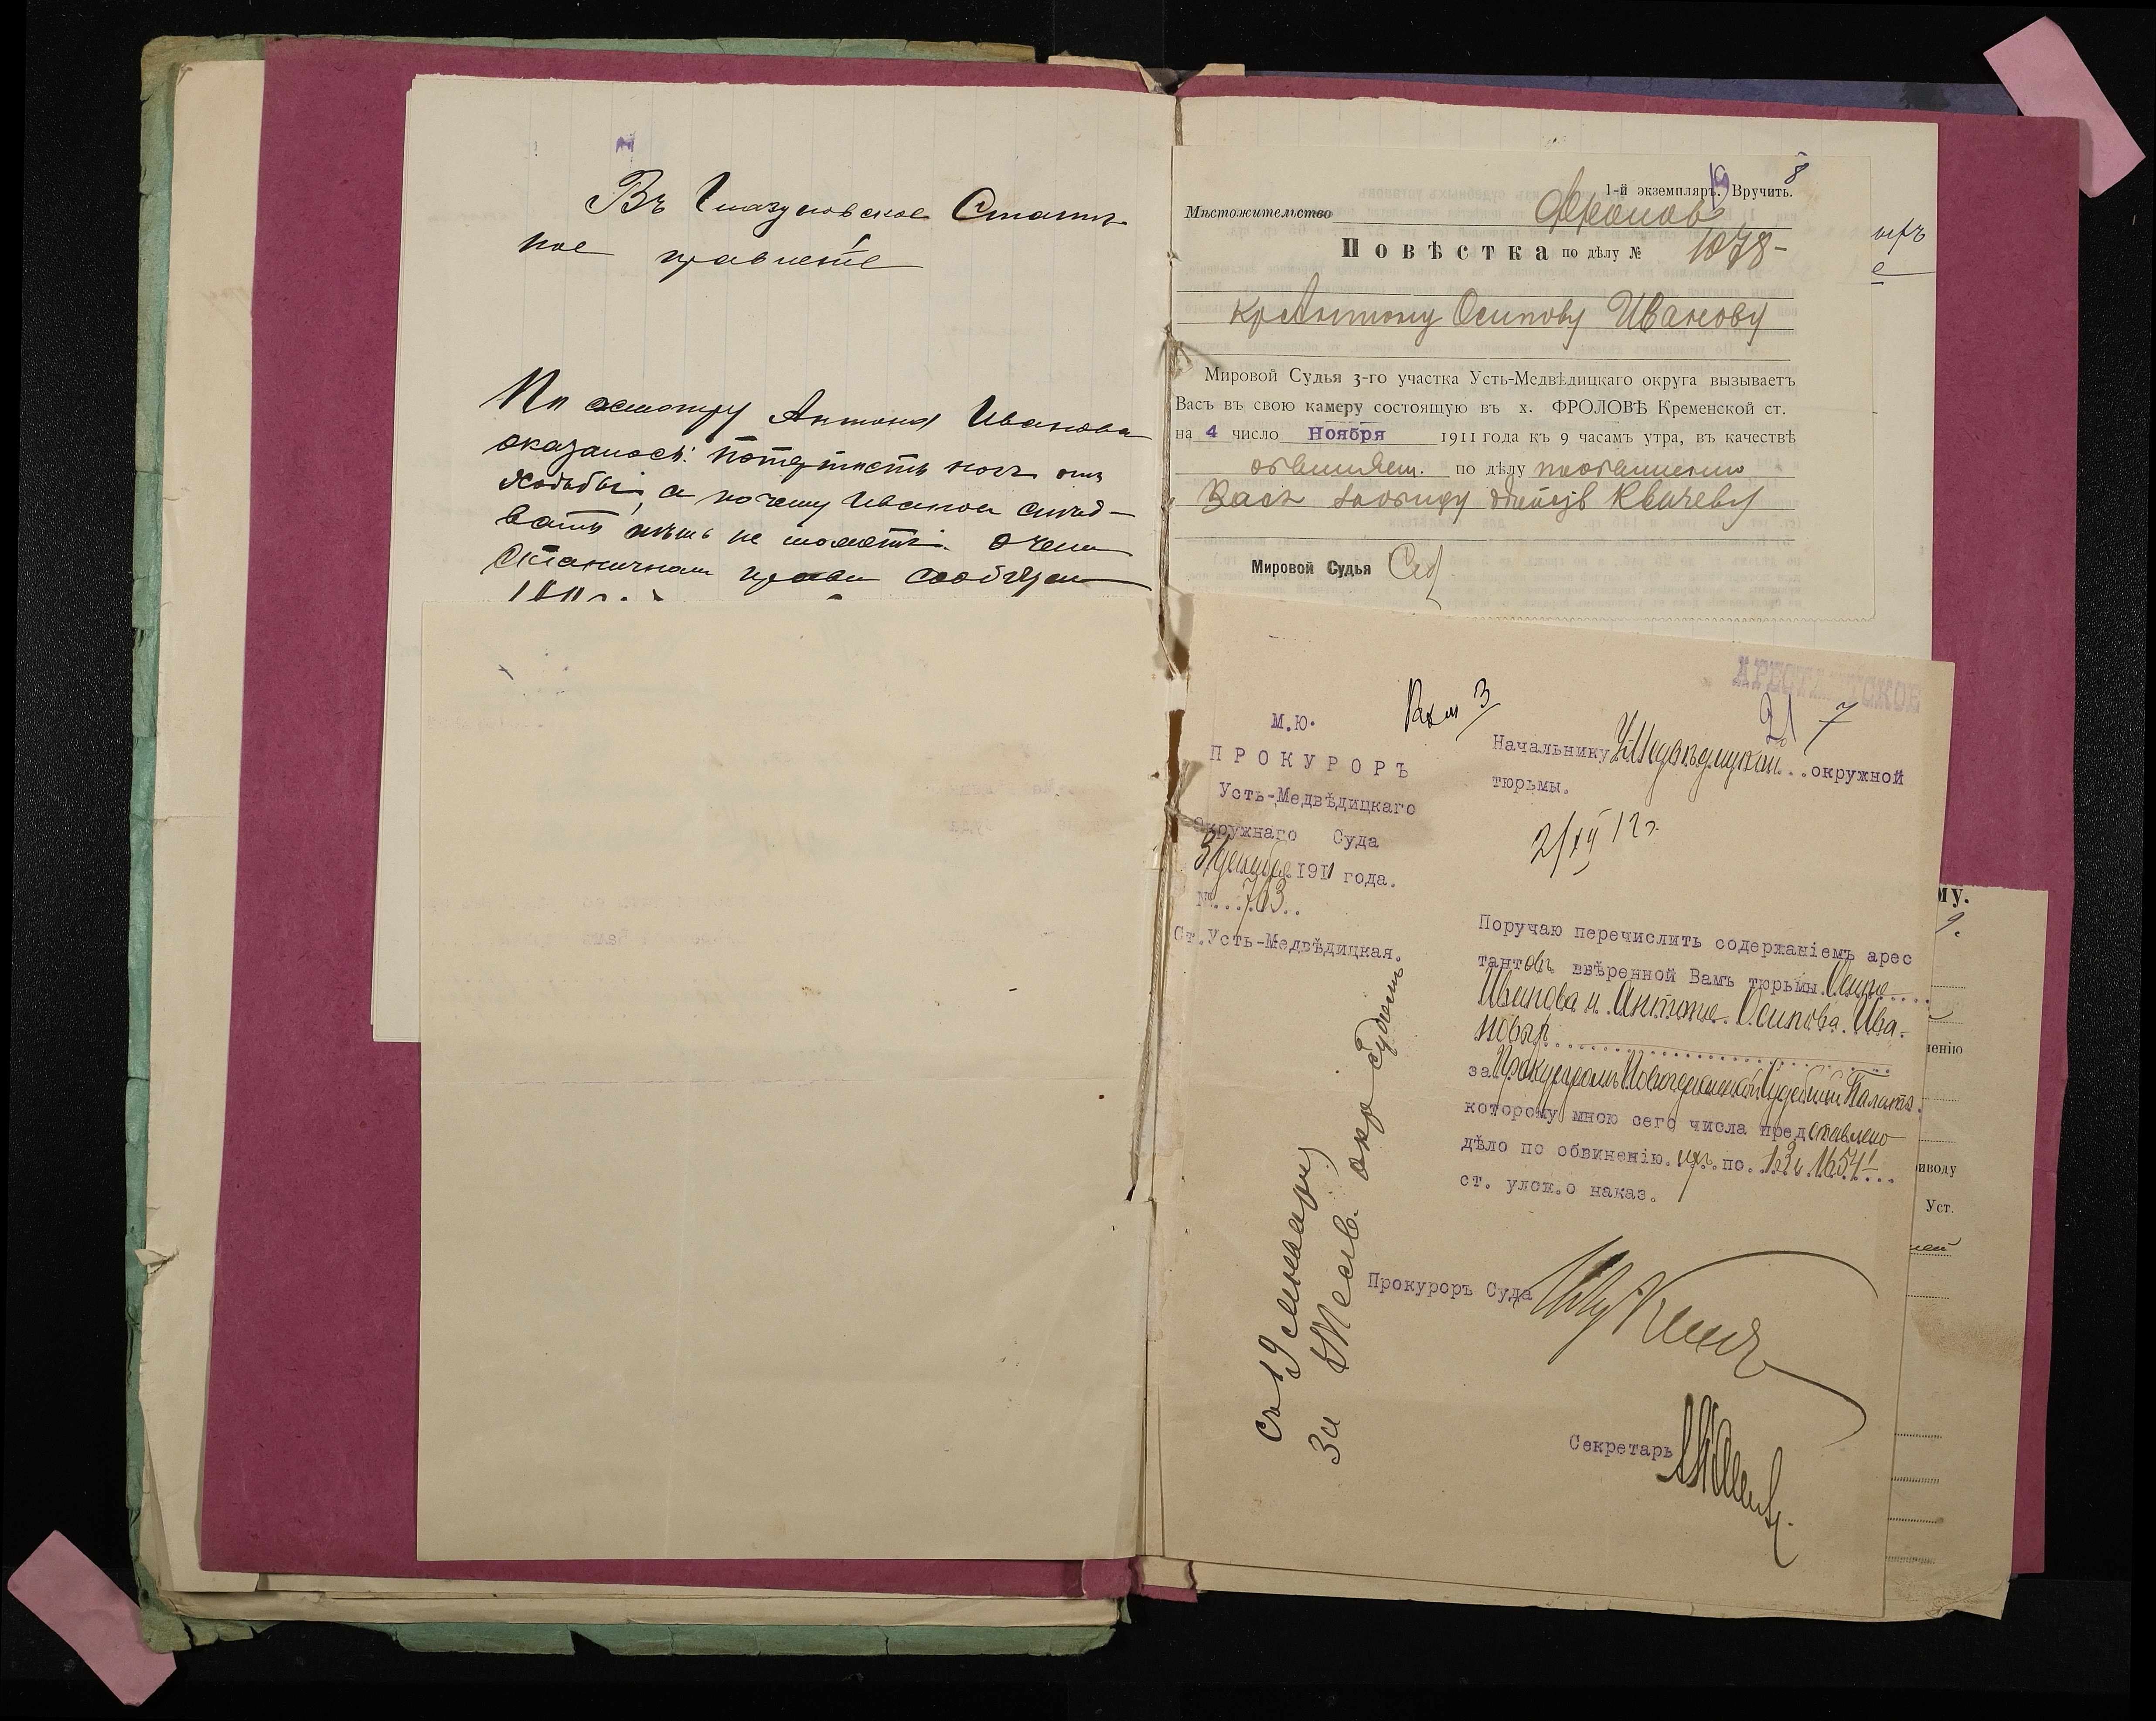 Въ Глазуновское Станич
ное правленіе
По осмотру Антона Иванова
оказалось: потертость ногъ отъ
ходьбы, а почему Иванов слѣд-
вать пѣшъ не можетъ. О чемъ
Станичном правл сообщаю
1911 г.
1-й экземпляръ. Вручить.
8
Мѣстожительство Фролов
Повѣстка по дѣлу № 1078-
кр Антону Осипову Иванову
Мировой Судья 3-го участка Усть-Медвѣдицкаго округа вызываетъ
Васъ въ свою камеру состоящую въ х. ФРОЛОВѢ Кременской ст.
на 4 число Ноября 1911 года къ 9 часамъ утра, въ качествѣ
обвиняем. по дѣлу по обвинению
Васъ
Мировой Судья
АРЕСТАНТСКОЕ
21 7
М.Ю.
ПРОКУРОРЪ
Усть-Медвѣдицкаго
Окружнаго Суда
31 декабря 1911 года.
№...763..
Ст.Усть-Медвѣдицкая.
Начальнику У-Медвѣдицкой...окружной
тюрьмы.
2/XII 12 г.
Поручаю перечислить содержаніемъ арес
тантовъ ввѣренной Вамъ тюрьмы.Осипа....
Иванова и Антона Осипова Ива-
новыхъ
за Прокуроромъ Новочеркасской Судебной Палаты.
которому мною сего числа представлено
дѣло по обвиненію.ихъ.по.13 и 1654¹...
ст. улож.о наказ.
Прокуроръ Суда
Секретарь
съ 19 января
За У Медв. окр Судомъ
му.
9.
ненію
иводу
Уст.